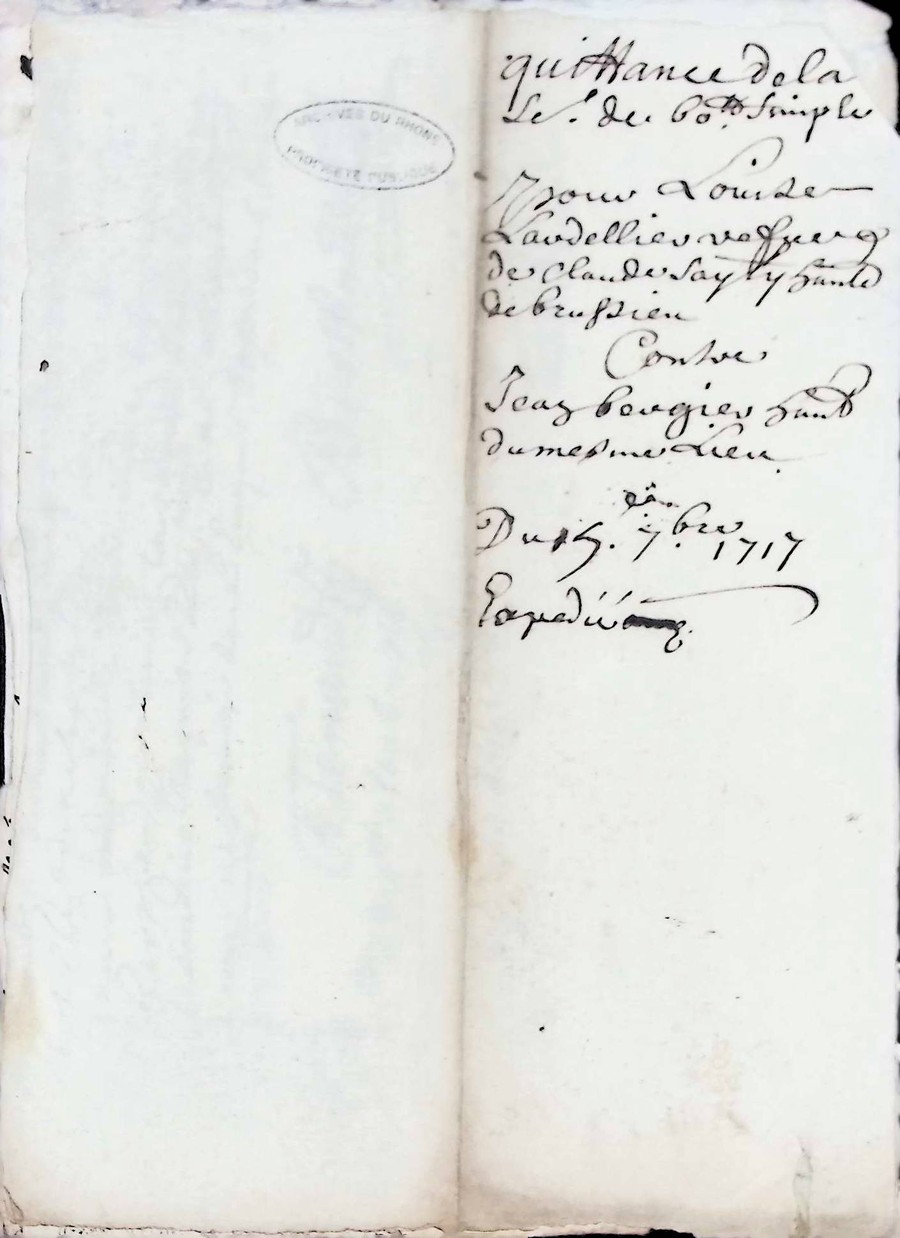 ARCHIVES DU RHONE
PROPRIÉTÉ PUBLIQUE
quittance de la
de 60 ₶ simple
pour Louise
Lardellier vefve
de Claude hant
de brussieu
Contre
Jean bergier hant
du mesme Lieu
Du 15. 7.bre 1717
Expedié